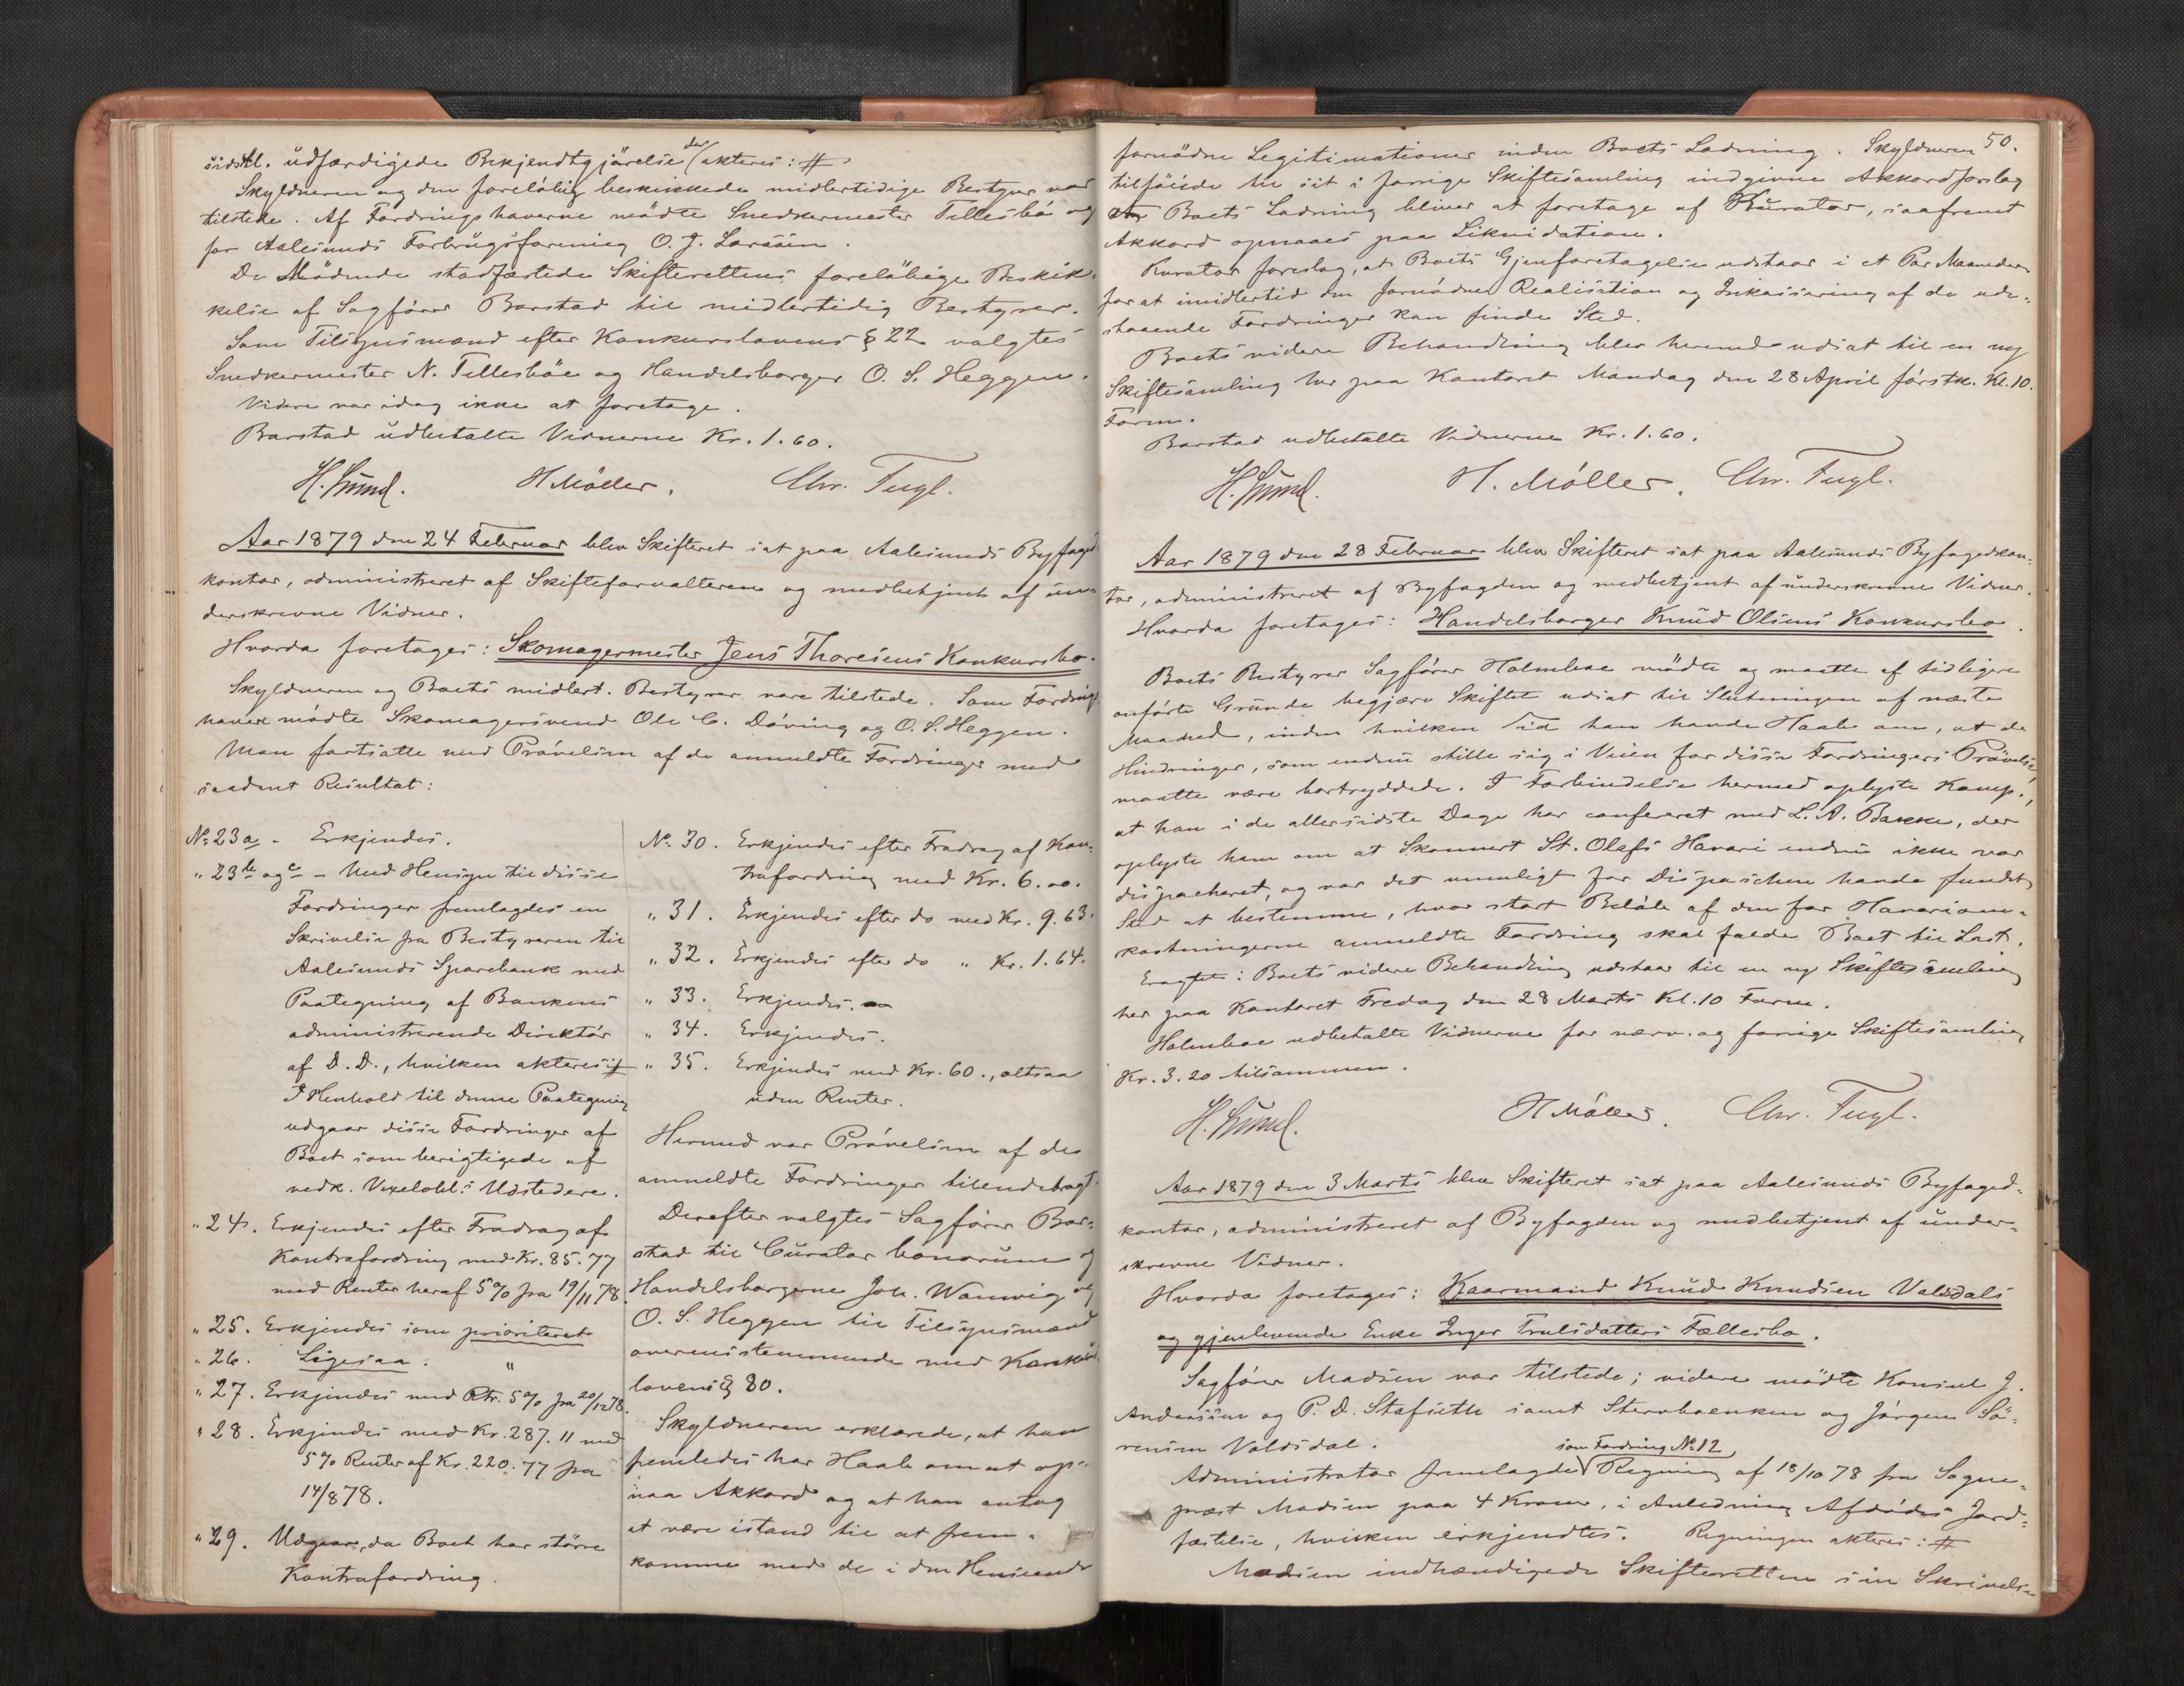 sidstl. udfærdigede Bekjendtgjörelse der akteres: #
Skyldneren og den foreløbig beskikkede midlertidige Bestyrer var
tilstede. Af Fordringshaverne mödte Snedkermester Tellesbö og
for Aalesunds Forbrugsforening O. J. Larssen.
De Mödende stadfæstede Skifterettens foreløbige Beskik-
kelse af Sagfører Barstad til midlertidig Bestyrer.
Som Tilsynsmænd efter Konkurslovens § 22 valgtes
Snedkermester N. Tellesböe og Handelsborger O. S. Heggen.
Videre var idag ikke at foretage.
Barstad udbetalte Vidnerne Kr. 1.60.
H. Lund. H Möller. Chr. Fugl.
Aar 1879 den 24 Februar blev Skifteret sat paa Aalesunds Byfoged-
kontor, administreret af Skifteforvalteren og medbetjent af un-
derskrevne Vidner.
Hvorda foretages: Skomagermester Jens Thoresens Konkursbo.
Skyldneren og Boets midlert. Bestyrer vare tilstede. Som Fordrings-
havere mödte Skomagersvend Ole C. Döving og O. S. Heggen.
Man fortsatte med Prövelsen af de anmeldte Fordringer med
saadant Resultat:
No. 23a - Erkjendes.
" 23b og c - Med Hensyn til disse
Fordringer fremlagdes en
Skrivelse fra Bestyreren til
Aalesunds Sparebank med
Paategning af Bankens
administrerende Direktör
af D. D., hvilken akteres: #
I Henhold til denne Paategning
udgaar disse Fordringer af
Boet som berigtigede af
vedk. Vexelobl.s Udstedere.
" 24. Erkjendes efter Fradrag af
Kontrafordring med Kr. 85.77
med Renter heraf 5% fra 19/11 78
" 25. Erkjendes som prioriteret
" 26. Ligesaa. "
" 27. Erkjendes med Rtr. 5% fra 20/12 78.
" 28. Erkjendes med Kr. 287.11 med
5% Renter af Kr. 220.77 fra
14/8 78.
" 29. Udgaar, da Boet har större
Kontrafordring.
No. 30. Erkjendes efter Fradrag af Kon-
trafordring med Kr. 6.00.
" 31. Erkjendes efter do med Kr. 9.63.
" 32. Erkjendes efter do " Kr. 1.64.
" 33. Erkjendes.
" 34. Erkjendes.
" 35. Erkjendes med Kr. 60., altsaa
uden Renter.
Hermed var Prövelsen af de
anmeldte Fordringer tilendebragt.
Derefter valgtes Sagfører Bar-
stad til Curator bonorum og
Handelsborgerne Joh. Wanvig og
O. S. Heggen til Tilsynsmænd
overensstemmende med Konkurs-
lovens § 80.
Skyldneren erklærede, at han
fremdeles har Haab om at op-
naa Akkord og at han antog
at være istand til at frem-
komme med de i den Henseende
50.
fornödne Legitimationer inden Boets Ladning. Skyldneren
tilföiede til sit i forrige Skiftesamling indgivne Akkordforslag
Boets Ladning bliver at foretage af Kurator, saafremt
Akkord opnaaes paa Likvidation.
Kurator foreslog, at Boets Gjenforetagelse udstaar i et Par Maaneder
for at imidlertid den fornödne Realisation og Inkassering af de ude-
staaende Fordringer kan finde Sted.
Boets videre Behandling blev herved udsat til en ny
Skiftesamling her paa Kontoret Mandag den 28 April förstk. Kl. 10.
Form.
Barstad udbetalte Vidnerne Kr. 1.60.
H. Lund. H. Möller. Chr. Fugl.
Aar 1879 den 28 Februar blev Skifteret sat paa Aalesunds Byfogedkon-
tor, administreret af Byfogden og medbetjent af underskrevne Vidner.
Hvorda foretages: Handelsborger Knud Olsens Konkursbo.
Boets Bestyrer Sagfører Holmboe mödte og maatte af tidligere
anförte Grunde begjære Skiftet udsat til Slutningen af næste
Maaned, inden hvilken Tid han havde Haab om, at de
Hindringer, som endnu stille sig i Veien for disse Fordringers Prövelse,
maatte være bortryddede. I Forbindelse hermed oplyste Komp.,
at han i de allersidste Dage har confereret med L. A. Bakke, der
oplyste ham om at Skonnert St. Olafs Havari endnu ikke var
dispacheret, og var det umuligt for Dispaschen havde fundet
Sted at bestemme, hvor stort Belöb af den for Havariom-
kostningerne anmeldte Fordring skal falde Boet til Last.
Eragtet: Boets videre Behandling udstaar til en ny Skiftesamling
her paa Kontoret Fredag den 28 Marts Kl. 10 Form.
Holmboe udbetalte Vidnerne for nærv. og forrige Skiftesamling
Kr. 3.20 tilsammen.
H. Lund. H Möller. Chr. Fugl.
Aar 1879 den 3 Marts blev Skifteret sat paa Aalesunds Byfoged-
kontor, administreret af Byfogden og medbetjent af under-
skrevne Vidner.
Hvorda foretages: Kaarmand Knud Knudsen Valsdals
og gjenlevende Enke Inger Trulsdatters Fællesbo.
Sagfører Madsen var tilstede; videre mödte Konsul J.
Anderssen og P. D. Stafseth samt Stervboenken og Jörgen Sö-
rensen Valdsdal.
Administrator fremlagde som Fordring No. 12 Regning af 18/10 78 fra Sogne-
præst Madsen paa 4 Kroner, i Anledning Afdödes Jord-
fæstelse, hvilken erkjendtes. Regningen akteres: #
Madsen indhændigede Skifteretten sin Skrivelse